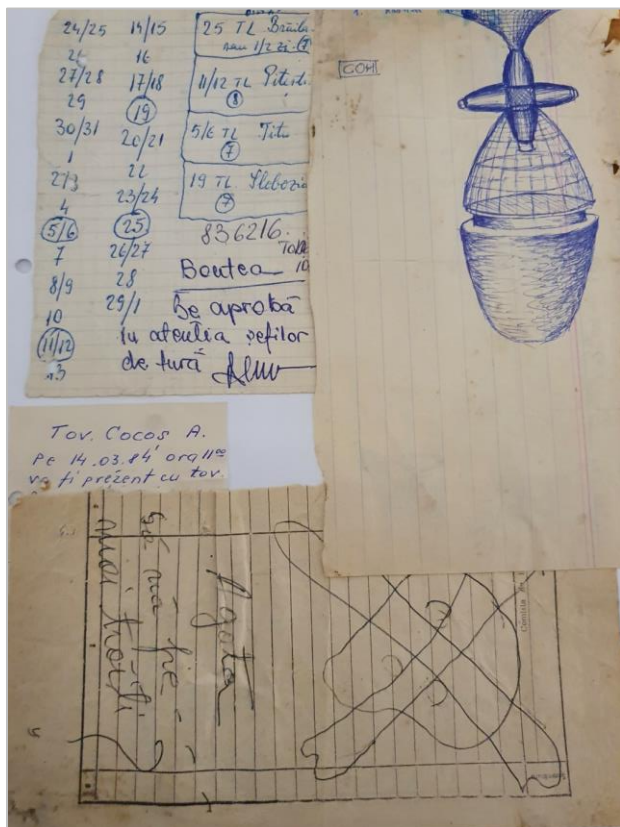 24/25 14/15
26 16
27/28 17/18
29 19
30/31 20/21
1 22
2/3 23/24
4 25
5/6 26/27
7 28
8/9 29/1
10
11/12
13
25 TL Brăila
sau 1/2 zi (7)
11/12 TL Pitesti
8
5/6 TL Titu
7
19 TL Slobozia
7
836216.
Boutea
Se aprobă
în atentia șefilor
de tură
GOH
Tov. Cocos A.
Pe 14.03.84 ora 11⁰⁰
va fi prezent cu tov.
Agata
să nă fie
mai trăiti